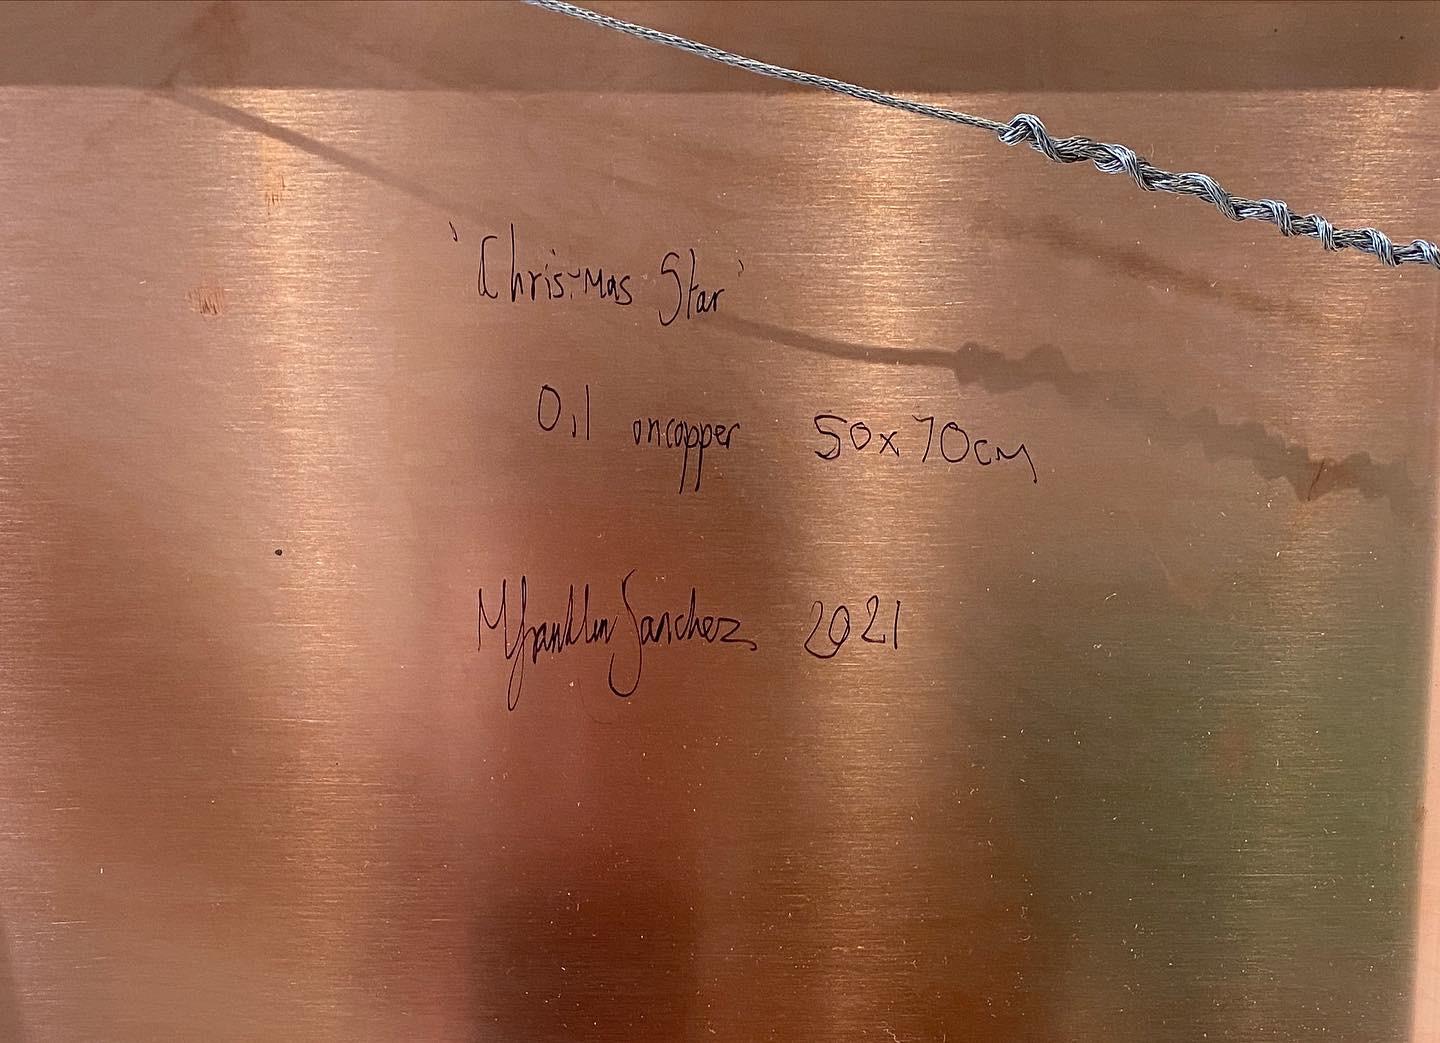 'Christmas Star'
Oil on copper 50x70cm
MFranklinSanchez 2021